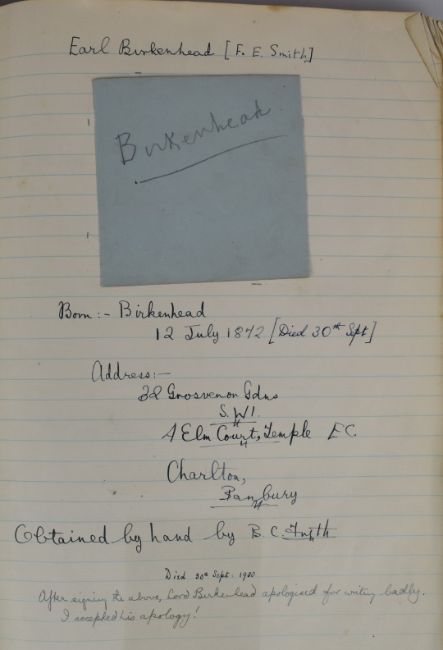 Earl Birkenhead [F. E. Smith.]
Birkenhead
Born :- Birkenhead
12 July 1872 [Died 30th Sept]
Address:-
32 Grosvenor Gdns
S.W1.
4 Elm Court, Temple E.C.
Charlton,
Banbury
Obtained by hand by B. C.
Died 30th Sept. 1930
After signing the above, Lord Birkenhead apologised for writing badly.
I accepted his apology!